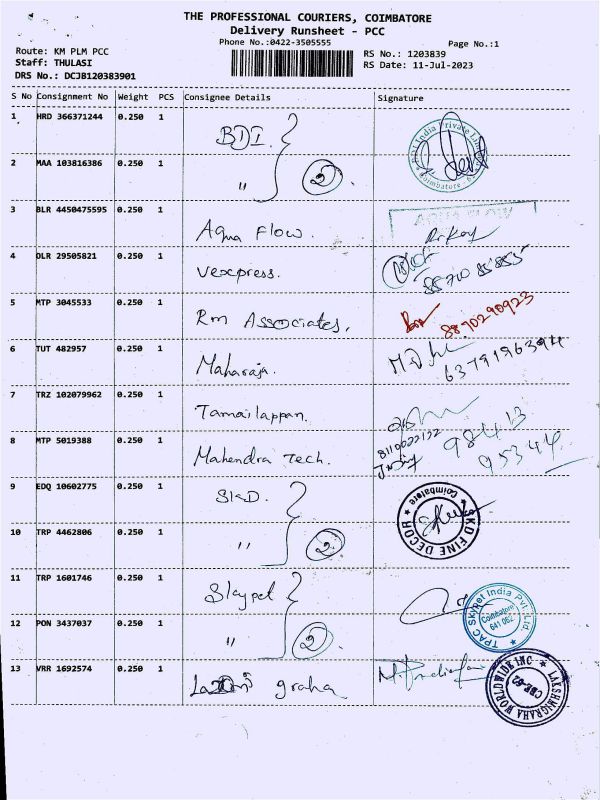 THE PROFESSIONAL COURIERS, COIMBATORE
Delivery Runsheet - PCC
Phone No.:0422-3505555
Page No.:1
Route: KM PLM PCC
RS No.: 1203839
Staff: THULASI
RS Date: 11-Jul-2023
DRS No.: DCJB120383901
S No Consignment No Weight PCS Consignee Details Signature
1 HRD 366371244 0.250 1 BDI.
2 MAA 103816386 0.250 1 " 2
3 BLR 4450475595 0.250 1 Aqua Flow.
AQUA FLOW
4 DLR 29505821 0.250 1 Vexpress.
5 MTP 3045533 0.250 1 Rm Associates.
8870290923
6 TUT 482957 0.250 1 Maharaja.
6379196394
7 TRZ 102079962 0.250 1 Tamailappan.
8110022122
98413
8 MTP 5019388 0.250 1 Mahendra Tech.
95344
9 EDQ 10602775 0.250 1 SKD.
Coimbatore
SKD FINE DECOR
10 TRP 4462806 0.250 1 " 2
11 TRP 1601746 0.250 1 Skypet
TPAC Skypet India Pvt. Ltd.
Coimbatore
641 062
12 PON 3437037 0.250 1 " 2
13 VRR 1692574 0.250 1 graha
LAKSHMIGRAHA WORLDWIDE INC
CBE-62